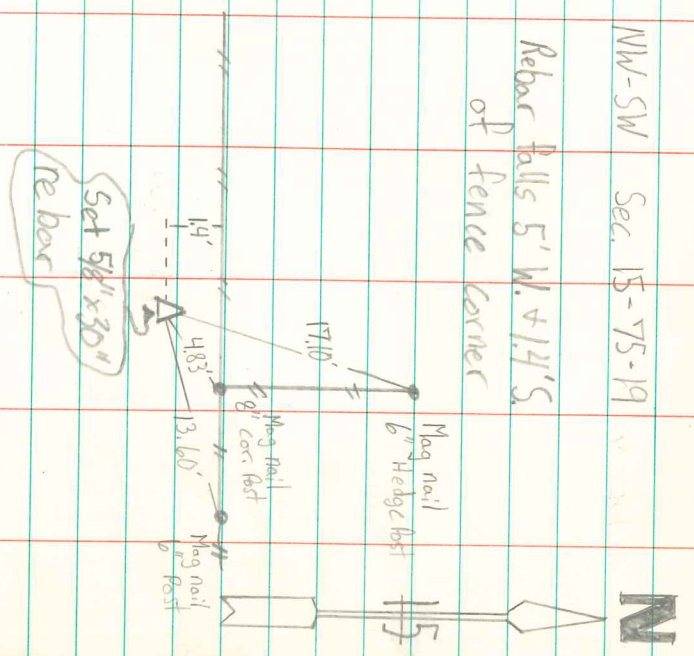 NW-SW Sec. 15-75-19
Rebar falls 5' W. + 1.4' S.
of fence corner
Mag nail
6" Hedge Post
17.10'
Mag nail
8" cor. Post
4.83'
13.60'
Mag nail
6" Post
1.4'
Set 5/8" x 30"
rebar
N
15